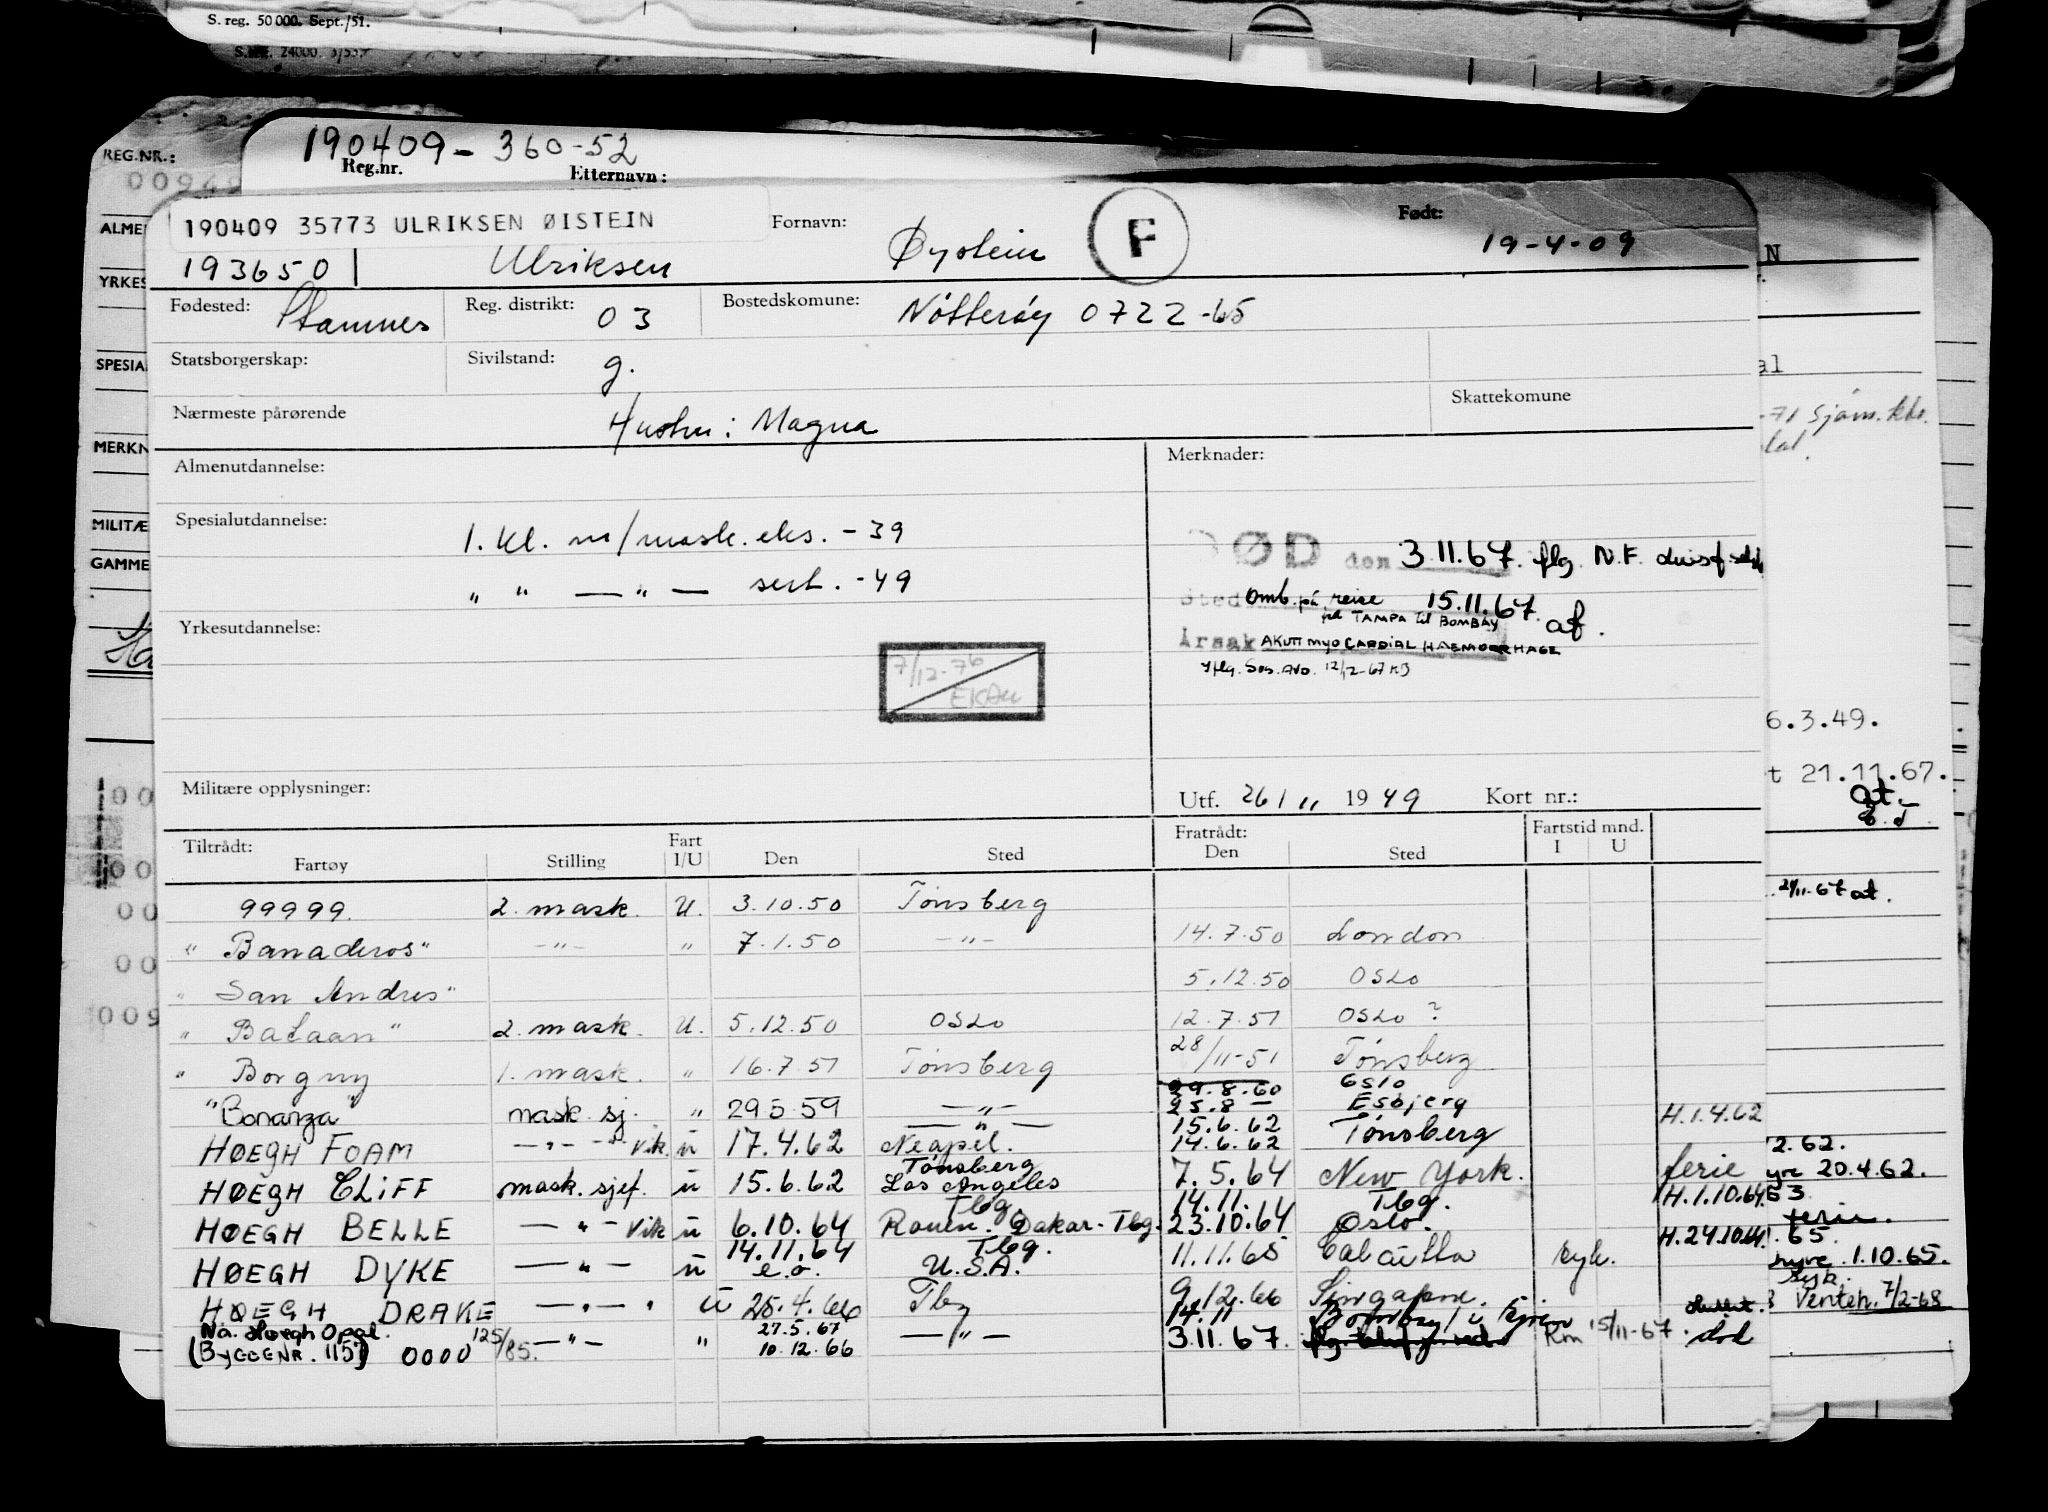 S. reg. 50 000. Sept./51.
REG.NR.:
190409 - 360-52
Reg.nr. Etternavn:
190409 35773 ULRIKSEN ØISTEIN
193650 Ulriksen
Fornavn: Øystein
F
Født: 19-4-09
Fødested: Stamnes
Reg. distrikt: 03
Bostedskomune: Nötteröy 0722-65
Statsborgerskap:
Sivilstand: g.
Skattekomune
Nærmeste pårørende Hustru: Magna
Almenutdannelse:
Merknader:
Spesialutdannelse: 1. kl. m/mask. eks. - 39
" " — " — sert. - 49
ØD den 3.11.67. flg. N.F.
Sted Omb. på reise 15.11.67. at.
på TAMPA til BOMBAY
Årsak AKUTT MYOCARDIAL HAEMORRHAGE
Yflg. Sos. Avd. 12/12-67 KB
Yrkesutdannelse:
7/12-76
Militære opplysninger:
Utf. 26/11 1949 Kort nr.:
Tiltrådt: Fartøy Stilling Fart I/U Den Sted Fratrådt: Den Sted Fartstid mnd. I U
99999. 2. mask. U. 3.10.50 Tönsberg
" Banaderos" -"- " 7.1.50 -"- 14.7.50 London
" San Andres" 5.12.50 Oslo
" Bataan" 2. mask. U. 5.12.50 Oslo 12.7.51 Oslo ?
" Borgny 1. mask. " 16.7.51 Tönsberg 28/11-51 Tönsberg
29.8.60 Oslo
"Bonanza" mask. sj. " 29.5.59 —"— 25.8 — Esbjerg
—"— 15.6.62 Tönsberg H.1.4.62
HØEGH FOAM —"— Vik. ü 17.4.62 Neapel. 14.6.62
Tönsberg
HØEGH CLIFF mask. sjef. ü 15.6.62 Los Angeles 7.5.64 New York. ferie
Tbg. 14.11. Tbg. H.1.10.64
HØEGH BELLE —"— Vik ü 6.10.64 Rouen. Dakar-Tbg. 23.10.64 Oslo.
14.11.64 Tbg. H.24.10.64
HØEGH DYKE —"— ü e.o. U.S.A. 11.11.65 Calcutta syk.
HØEGH DRAKE —"— " ü 25.4.66 Tbg 9.12.66 Singapore.
Na. Høegh Opal. 27.5.67 14.11 Bombay
(BYGGENR. 115) 0000 125/85. —"— " 10.12.66 —"— 3.11.67. 15/11-67. død
6.3.49.
21.11.67.
at.
21/11-67 at.
2.62.
20.4.62.
65.
1.10.65.
syk.
7/2-68